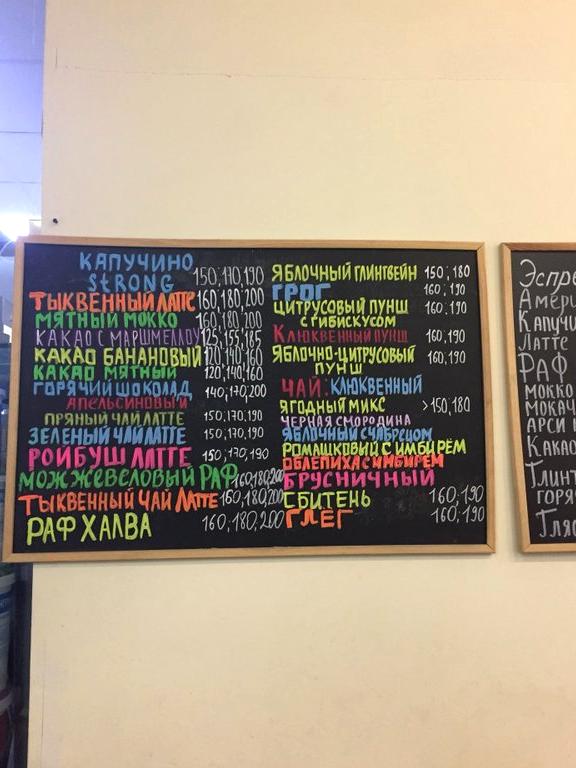 КАПУЧИНО
STRONG 150,170,190
ТЫКВЕННЫЙ ЛАТТЕ 160,180,200
МЯТНЫЙ МОККО 160,180,200
КАКАО С МАРШМЕЛЛОУ 125,155,185
КАКАО БАНАНОВЫЙ 120,140,160
КАКАО МЯТНЫЙ 120,140,160
ГОРЯЧИЙ ШОКОЛАД 140,170,200
АПЕЛЬСИНОВЫЙ
ПРЯНЫЙ ЧАЙ ЛАТТЕ 150,170,190
ЗЕЛЕНЫЙ ЧАЙ ЛАТТЕ 150,170,190
РОЙБУШ ЛАТТЕ 150,170,190
МОЖЖЕВЕЛОВЫЙ РАФ 160,180,200
ТЫКВЕННЫЙ ЧАЙ ЛАТТЕ 160,180,200
РАФ ХАЛВА 160,180,200
ЯБЛОЧНЫЙ ГЛИНТВЕЙН 150,180
ГРОГ 160,190
ЦИТРУСОВЫЙ ПУНШ 160,190
С ГИБИСКУСОМ
КЛЮКВЕННЫЙ ПУНШ 160,190
ЯБЛОЧНО-ЦИТРУСОВЫЙ 160,190
ПУНШ
ЧАЙ: КЛЮКВЕННЫЙ
ЯГОДНЫЙ МИКС >150,180
ЧЕРНАЯ СМОРОДИНА
ЯБЛОЧНЫЙ С ЧАБРЕЦОМ
РОМАШКОВЫЙ С ИМБИРЁМ
ОБЛЕПИХА С ИМБИРЕМ
БРУСНИЧНЫЙ
СБИТЕНЬ 160,190
ГЛЁГ 160,190
Эспре
Амери
Капучи
Латте
РАФ
МОККО
МОКАЧ
АРСИ К
Какао
Глинт
ГОРЯ
Гляс